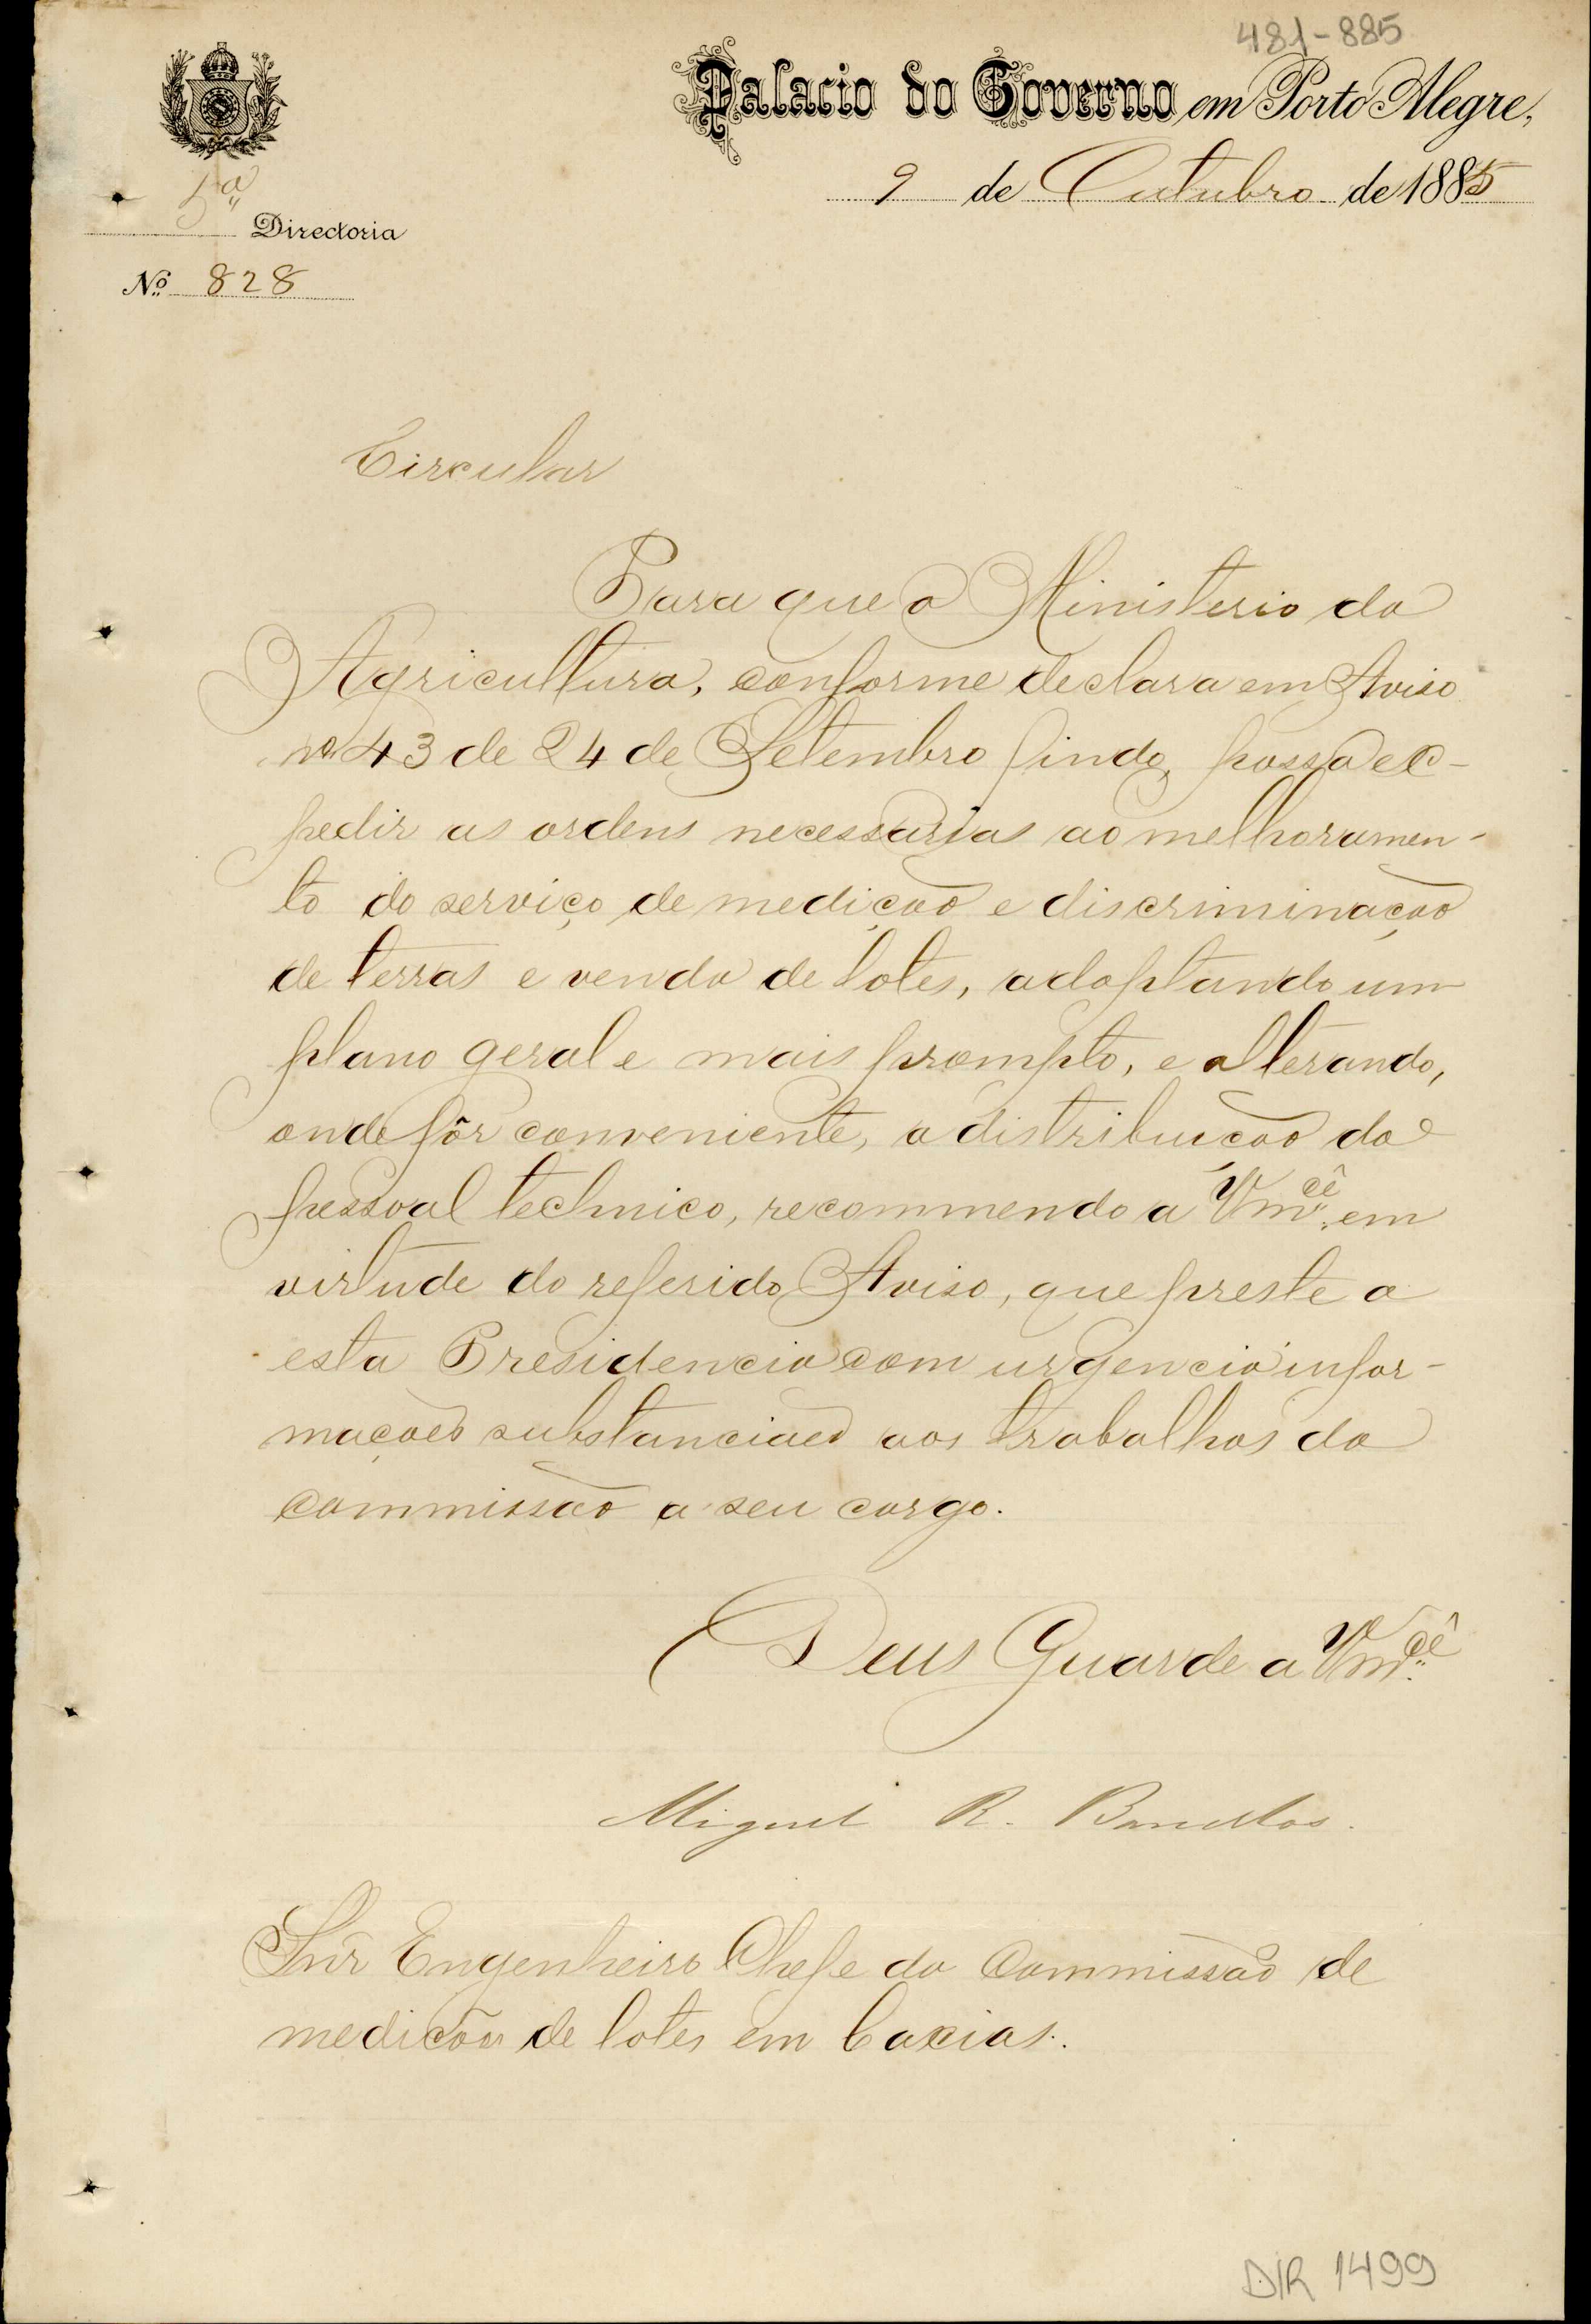 481-885
Palacio do Governo em Porto Alegre,
9 de Outubro de 1885
5ª Directoria
Nº 828
Circular
Para que o Ministerio da
Agricultura, conforme declara em Aviso
nº 43 de 24 de Setembro findo, possa ex-
pedir as ordens necessarias ao melhoramen-
to do serviço de medição e discriminação
de terras e venda de lotes, adoptando um
plano geral e mais prompto, e alterando,
onde fôr conveniente, a distribuição do
pessoal technico, recommendo a Vmcê em
virtude do referido Aviso, que preste a
esta Presidencia com urgencia infor-
mações substanciaes aos trabalhos da
commissão a seu cargo.
Deus Guarde a Vmcê
Miguel R. Barcellos.
Snr Engenheiro Chefe da Commissão de
medicões de lotes em Caxias.
DIR 1499